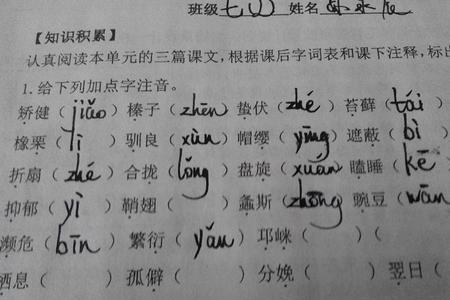 班级 七(2) 姓名
【知识积累】
认真阅读本单元的三篇课文,根据课后字词表和课下注释,标出
1.给下列加点字注音。
矫健(jiǎo) 榛子(zhēn) 蛰伏(zhé) 苔藓(tái)
橡栗(lì) 驯良(xùn) 帽缨(yīng) 遮蔽(bì)
折扇(zhé) 合拢(lǒng) 盘旋(xuán) 瞌睡(kē)
抑郁(yì) 鞘翅( ) 螽斯(zhōng) 豌豆(wān)
濒危(bīn) 繁衍(yǎn) 邛崃( )(
栖息( ) 孤僻( ) 分娩( ) 翌日(